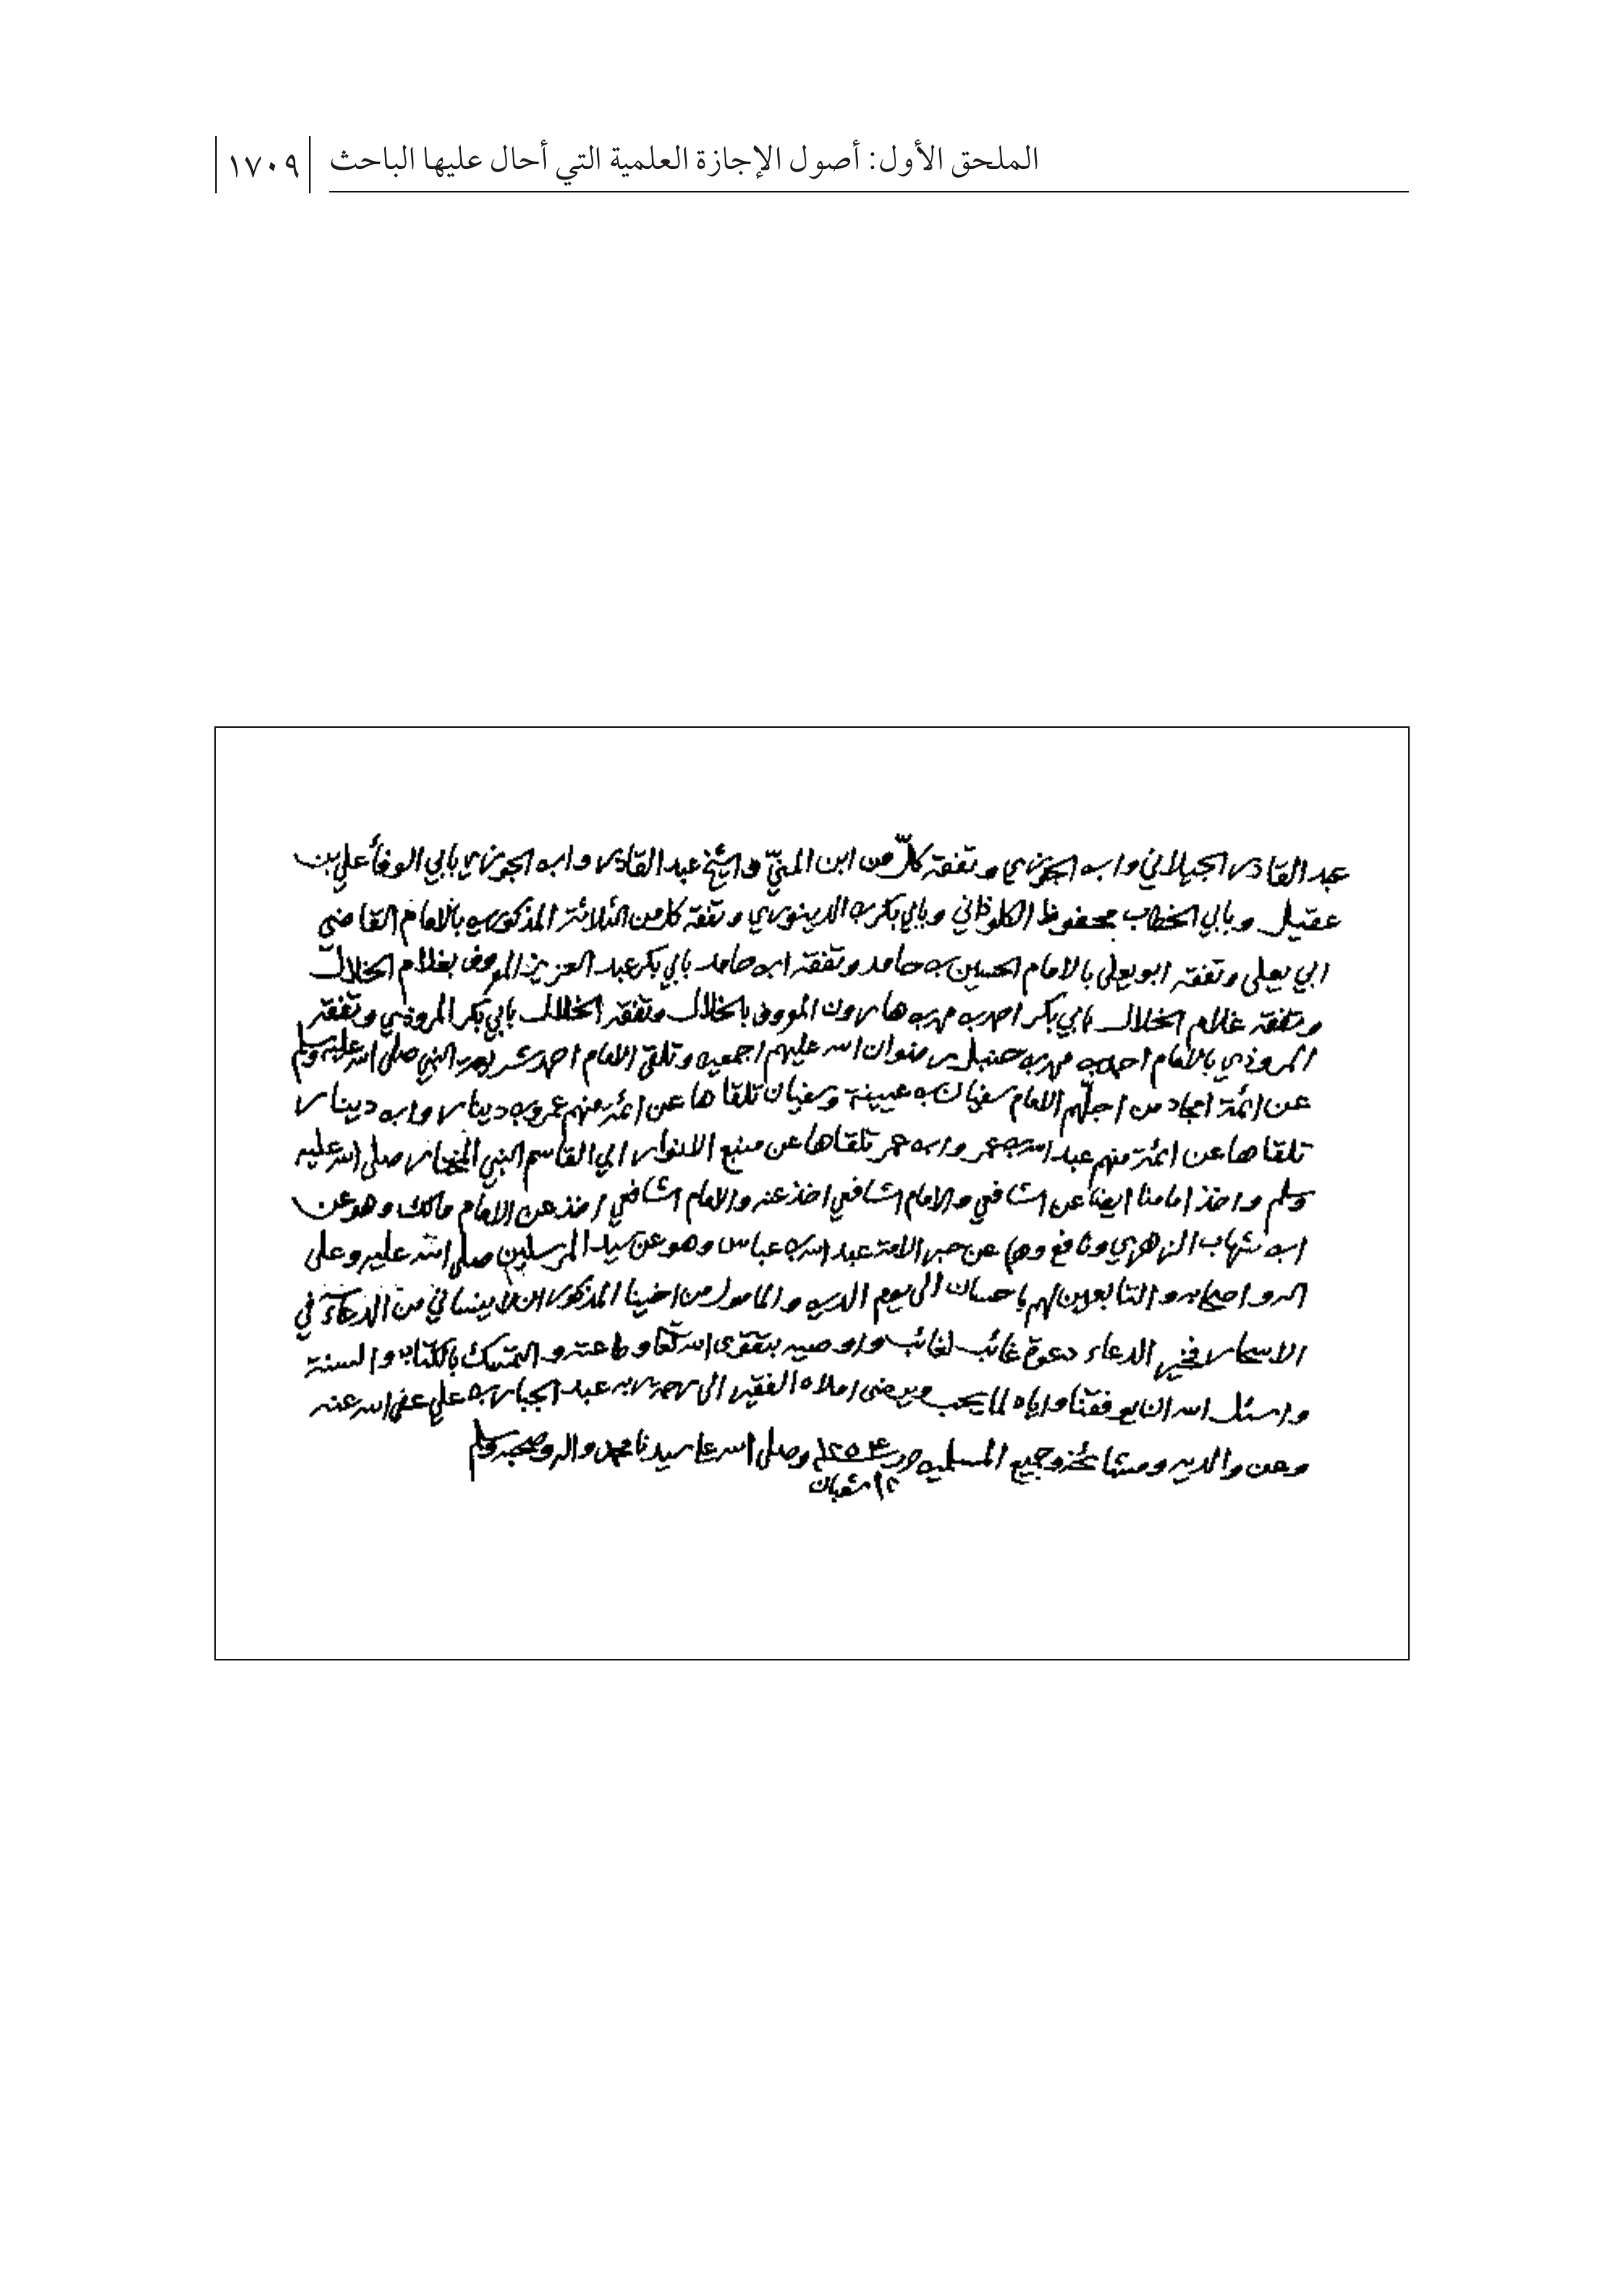 الملحق الأول: أصول الإجازة العلمية التي أحال عليها الباحث ١٧٠٩
عبد القادر الجيلاني وابن الجوزي وتفقه كلّ من ابن المنيّ والشيخ عبد القادر وابن الجوزي بابي الوفأ علي بن
عقيل وبابي الخطاب محفوظ الكلوذاني وبابي بكر بن الدينوري وتفقه كل من الثلاثة المذكورين بالامام القاضي
ابي يعلى وتفقه ابو يعلى بالامام الحسين بن حامد وتفقه ابن حامد بابي بكر عبد العزيز المعروف بغلام الخلال
وتفقه غلام الخلال بابي بكر احمد بن محمد بن هارون المعروف بالخلال وتفقه الخلال بابي بكر المروذي وتفقه
المروذي بالامام احمد بن محمد بن حنبل رضوان الله عليهم اجمعين وتلقى الامام احمد شريعة النبي صلى الله عليه وسلم
عن ائمة امجاد من اجلّهم الامام سفيان بن عيينة وسفيان تلقاها عن ائمة منهم عمرو بن دينار وابن دينار
تلقاها عن ائمة منهم عبد الله بن عمر وابن عمر تلقاها عن منبع الانوار ابي القاسم النبي المختار صلى الله عليه
وسلم واخذ امامنا ايضا عن الشافعي والامام الشافعي اخذ عنه والامام الشافعي اخذ عن الامام مالك وهو عن
ابن شهاب الزهري ونافع وهما عن حبر الامة عبد الله بن عباس وهو عن سيد المرسلين صلى الله عليه وعلى
اله واصحابه والتابعين لهم باحسان الى يوم الدين والمامول من اخينا المذكور ان لا ينساني من الدعاء في
الاسحار فخير الدعاء دعوة غائب لغائب واوصيه بتقوى الله تعالى وطاعته والتمسك بالكتاب والسنة
واسئل الله ان يوفقنا واياه لما يحب ويرضى املاه الفقير الى رحمة ربه عبد الجبار بن علي عفى الله عنه
وعن والديه ومشايخه وجميع المسلمين وصلى الله على سيدنا محمد واله وصحبه وسلم
شعبان